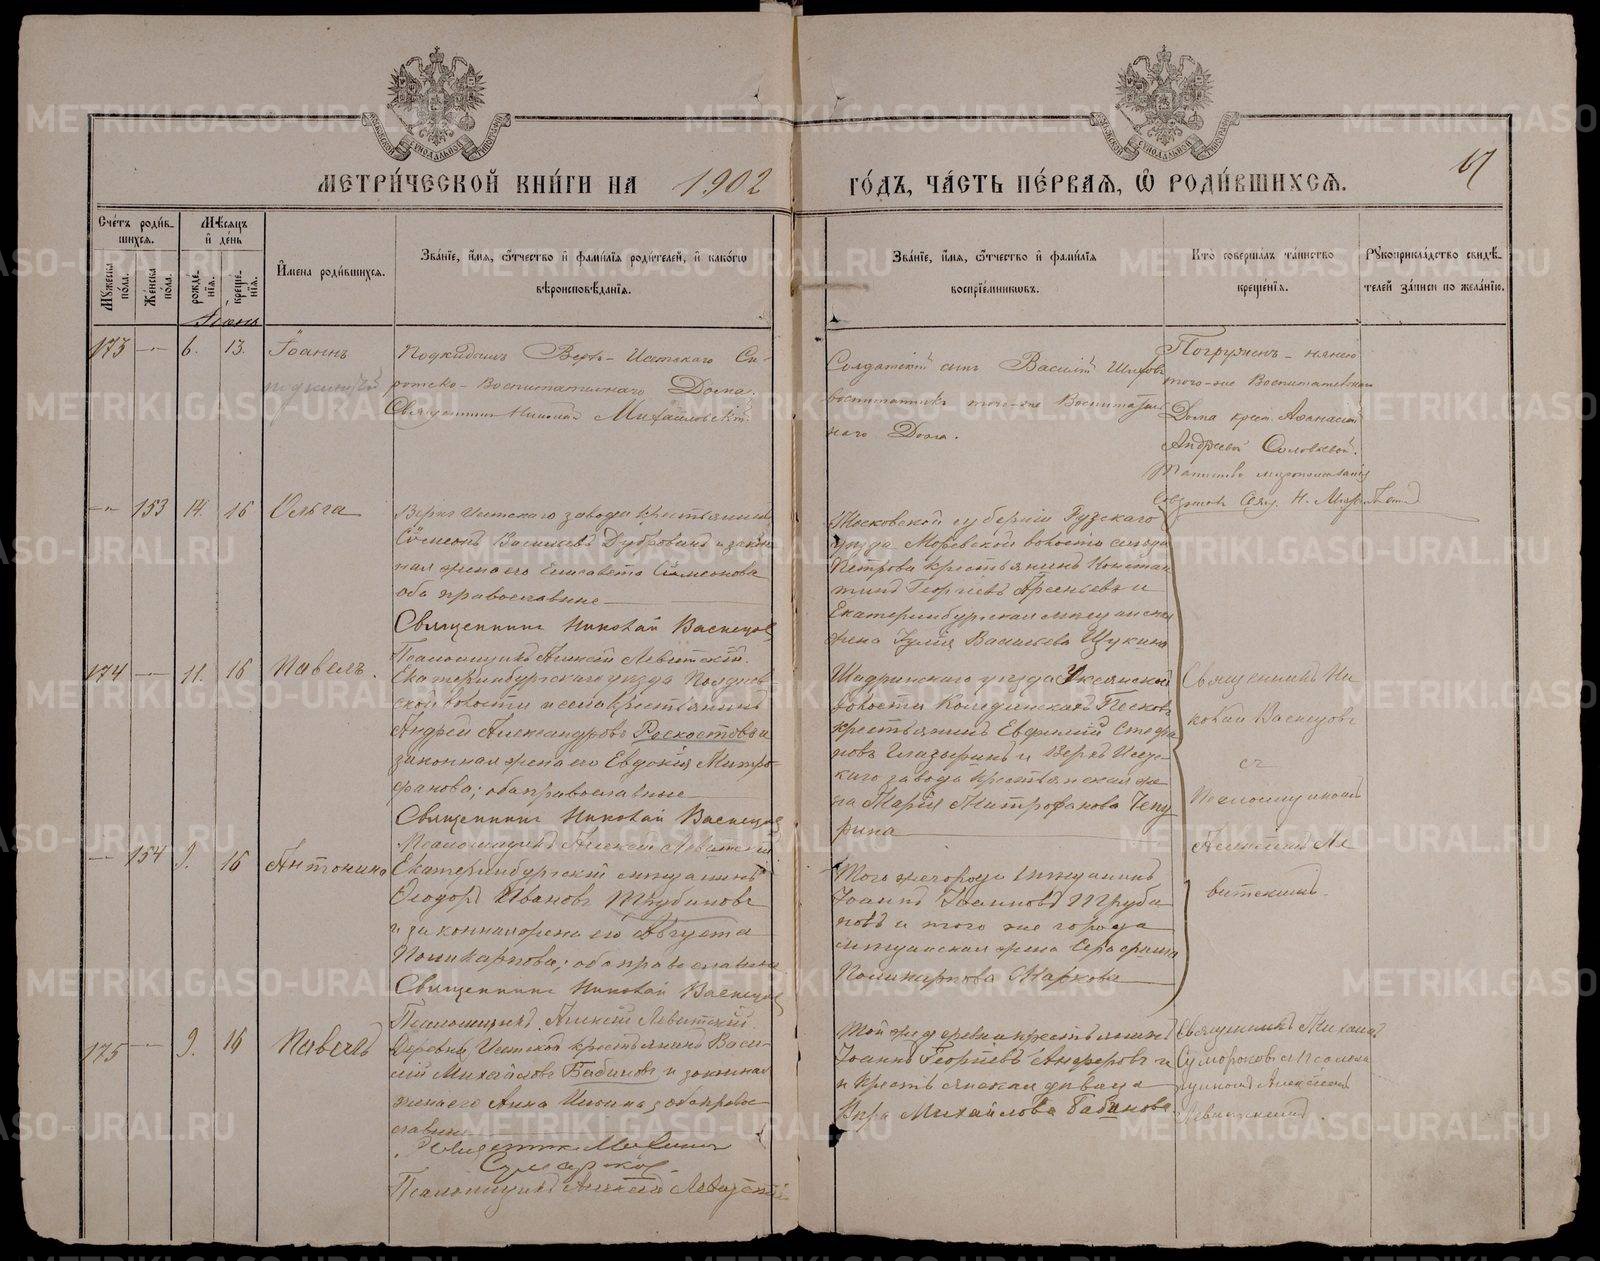 МЕТРИ́ЧЕСКОЙ КНИ́ГИ НА 1902 ГО́ДЪ, ЧА́СТЬ ПЕ́РВАЯ, Ѡ РОДИ́ВШИХСЯ.
67
Сче́тъ роди́в-
шихся.
Му́жеска по́ла.
Же́нска по́ла.
Мѣ́сяцъ
и де́нь
рожде-
нія.
креще-
нія.
Имена роди́вшихся.
Зва́ніе, и́мя, ѻ́тчество и фами́лія роди́телей, и како́гѡ
вѣроисповѣ́данія.
Зва́ніе, и́мя, ѻ́тчество и фами́лія
воспріе́мниковъ.
Кто̀ соверша́лъ та́инство
креще́нія.
Рукоприкла́дство свидѣ́-
телей за́писи по жела́нію.
Іюнь
173 — 6. 13. Іоаннъ
подкинутый
Подкидышъ Верхъ-Исетскаго Си-
ротско-Воспитательнаго Дома.
Священникъ Николай Михайловскій.
Солдатскій сынъ Василій
воспитатникъ того-же Воспитатель
наго Дома.
Погруженъ - нянею
того-же Воспитательнаго
Дома крест. Аѳанасіей
Андреевой Соловьевой.
Таинство миропомазанія
Совершилъ Свящ. Н.
— 153 14. 16 Ольга
Верхъ Исетскаго завода крестьянинъ
Сѵмеонъ Васильевъ Дубровинъ и закон
ная жена его Елисавета Сѵмеонова
оба православные
Священникъ Николай Васнецовъ
Псаломщикъ Алексій Левитскій.
Московской губерніи Рузскаго
уѣзда Моревской волости
Петрова крестьянинъ Констан
тинъ Георгіевъ Арсеньевъ и
Екатеринбургская мѣщанская
жена Васильева Щукина
174 — 11. 16 Павелъ.
Екатеринбургскаго уѣзда Полднев
ской волости и села крестьянинъ
Андрей Александровъ и
законная жена его Евдокія Митро-
фанова; оба православные
Священникъ Николай Васнецовъ
Псаломщикъ Алексій Левитскій
Шадринскаго уѣзда Уксянской
волости
крестьянинъ Евфимій Стефа
новъ Глазыринъ и Верхъ Исет-
скаго завода крестьянская же
на Марія Митрофанова Чепу
рина
Священникъ Ни
колай Васнецовъ
съ
Псаломщикомъ
Алексіемъ Ле
витскимъ
— 154 9. 16 Антонина
Екатеринбургскій мѣщанинъ
Ѳеодоръ Ивановъ Трубиновъ
и законная жена его Августа
Поликарпова; оба православные
Священникъ Николай Васнецовъ
Псаломщикъ Алексій Левитскій
Того же города мѣщанинъ
Іоаннъ Іоанновъ Труби
новъ и того же города
мѣщанская жена Серафима
Поликарпова Маркова
175 — 9. 16 Павелъ
Деревни Исетской крестьянинъ Васи-
лій Михайловъ Бабиновъ и законная
жена его Анна Ильина; оба право-
славные
Священникъ Михаилъ
Сумароковъ
Псаломщикъ Алексій Левитскій
Той же деревни крестьянинъ
Іоаннъ Георгіевъ Анферовъ и
крестьянская дѣвица
Вѣра Михайлова Бабинова
Священникъ Михаилъ
Сумароковъ и Псалом
щикомъ Алексіемъ
Левитскимъ.
METRIKI.GASO-URAL.RU